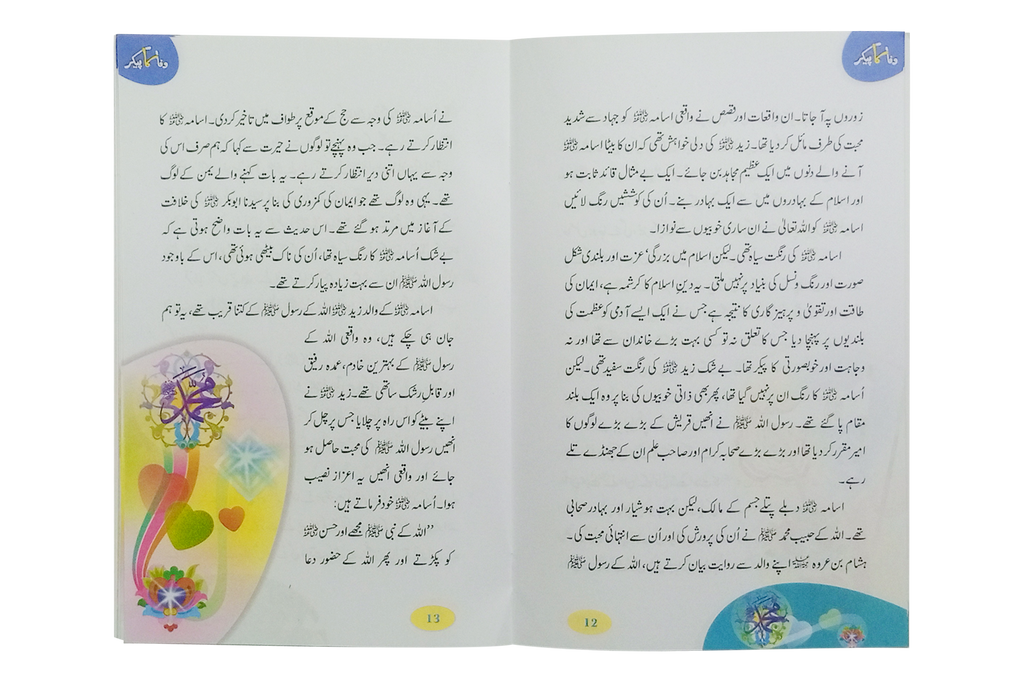 وفا کا پیکر
زوروں پہ آ جاتا۔ ان واقعات اور قصص نے واقعی اسامہ رضی اللہ عنہ کو جہاد سے شدید
محبت کی طرف مائل کر دیا تھا۔ زید رضی اللہ عنہ کی دلی خواہش تھی کہ ان کا بیٹا اسامہ رضی اللہ عنہ
آنے والے دنوں میں ایک عظیم مجاہد بن جائے۔ ایک بے مثال قائد ثابت ہو
اور اسلام کے بہادروں میں سے ایک بہادر بنے۔ اُن کی کوششیں رنگ لائیں
اسامہ رضی اللہ عنہ کو اللہ تعالیٰ نے ان ساری خوبیوں سے نوازا۔
اسامہ رضی اللہ عنہ کی رنگت سیاہ تھی۔ لیکن اسلام میں بزرگی، عزت اور بلندی شکل
صورت اور رنگ و نسل کی بنیاد پر نہیں ملتی۔ یہ دینِ اسلام کا کرشمہ ہے، ایمان کی
طاقت اور تقویٰ و پرہیز گاری کا نتیجہ ہے جس نے ایک ایسے آدمی کو عظمت کی
بلندیوں پر پہنچا دیا جس کا تعلق نہ تو کسی بہت بڑے خاندان سے تھا اور نہ
وجاہت اور خوبصورتی کا پیکر تھا۔ بے شک زید رضی اللہ عنہ کی رنگت سفید تھی۔ لیکن
اُسامہ رضی اللہ عنہ کا رنگ ان پر نہیں گیا تھا، پھر بھی ذاتی خوبیوں کی بنا پر وہ ایک بلند
مقام پا گئے تھے۔ رسول اللہ ﷺ نے انھیں قریش کے بڑے بڑے لوگوں کا
امیر مقرر کر دیا تھا اور بڑے بڑے صحابہ کرام اور صاحب علم ان کے جھنڈے تلے
رہے۔
اسامہ رضی اللہ عنہ دبلے پتلے جسم کے مالک، لیکن بہت ہوشیار اور بہادر صحابی
تھے۔ اللہ کے حبیب محمد ﷺ نے اُن کی پرورش کی اور اُن سے انتہائی محبت کی۔
ہشام بن عروہ رحمۃ اللہ علیہ اپنے والد سے روایت بیان کرتے ہیں، اللہ کے رسول ﷺ
محمد
12
وفا کا پیکر
نے اُسامہ رضی اللہ عنہ کی وجہ سے حج کے موقع پر طواف میں تاخیر کر دی۔ اسامہ رضی اللہ عنہ کا
انتظار کرتے رہے۔ جب وہ پہنچے تو لوگوں نے حیرت سے کہا کہ ہم صرف اس کی
وجہ سے یہاں اتنی دیر انتظار کرتے رہے۔ یہ بات کہنے والے یمن کے لوگ
تھے۔ یہی وہ لوگ تھے جو ایمان کی کمزوری کی بنا پر سیدنا ابوبکر رضی اللہ عنہ کی خلافت
کے آغاز میں مرتد ہو گئے تھے۔ اس حدیث سے یہ بات واضح ہوتی ہے کہ
بے شک اُسامہ رضی اللہ عنہ کا رنگ سیاہ تھا، اُن کی ناک بیٹھی ہوئی تھی، اس کے باوجود
رسول اللہ ﷺ ان سے بہت زیادہ پیار کرتے تھے۔
اسامہ رضی اللہ عنہ کے والد زید رضی اللہ عنہ اللہ کے رسول ﷺ کے کتنا قریب تھے، یہ تو ہم
جان ہی چکے ہیں، وہ واقعی اللہ کے
رسول ﷺ کے بہترین خادم، عمدہ رفیق
اور قابلِ رشک ساتھی تھے۔ زید رضی اللہ عنہ نے
اپنے بیٹے کو اس راہ پر چلایا جس پر چل کر
انھیں رسول اللہ ﷺ کی محبت حاصل ہو
جائے اور واقعی انھیں یہ اعزاز نصیب
ہوا۔ اُسامہ رضی اللہ عنہ خود فرماتے ہیں:
”اللہ کے نبی ﷺ مجھے اور حسن رضی اللہ عنہ
کو پکڑتے اور پھر اللہ کے حضور دعا
محمد
13